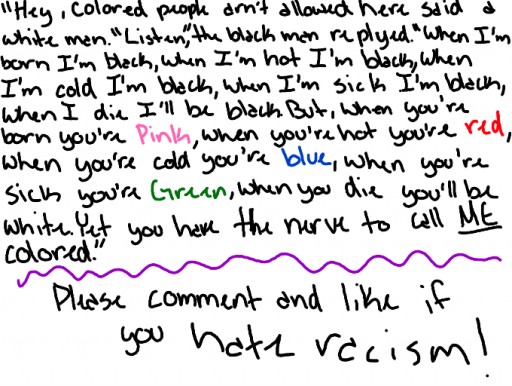 "Hey, colored people arn't allowed here said a
white man. "Listen", the black man replyed. "When I'm
born I'm black, when I'm hot I'm black, when
I'm cold I'm black, when I'm sick I'm black,
when I die I'll be black. But, when you're
born you're Pink, when you're hot you're red,
when you're cold you're blue, when you're
sick you're Green, when you die you'll be
white. Yet you have the nerve to call ME
colored."
Please comment and like if
you hate racism!